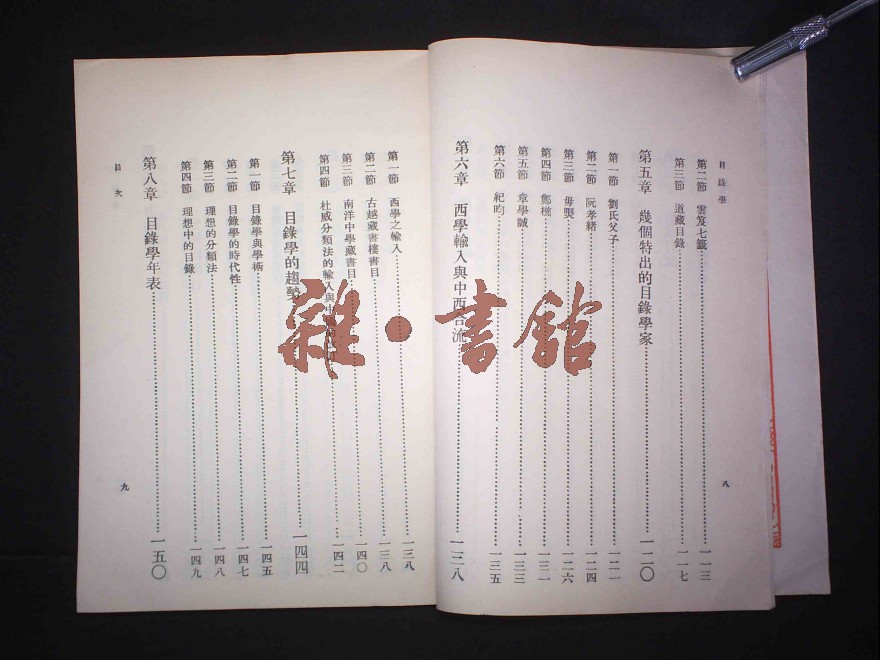 目錄學
第二節 雲笈七籤 一一三
第三節 道藏目錄 一一七
第五章 幾個特出的目錄學家 一二〇
第一節 劉氏父子 一二一
第二節 阮孝緒 一二四
第三節 毋煚 一二六
第四節 鄭樵 一三一
第五節 章學誠 一三三
第六節 紀昀 一三五
第六章 西學輸入與中西合流 一三八
八
第一節 西學之輸入 一三八
第二節 古越藏書樓書目 一三八
第三節 南洋中學藏書目 一四〇
第四節 杜威分類法的輸入與中 一四二
第七章 目錄學的趨勢 一四四
第一節 目錄學與學術 一四五
第二節 目錄學的時代性 一四七
第三節 理想的分類法 一四八
第四節 理想中的目錄 一四九
第八章 目錄學年表 一五〇
目次
九
雜·書館